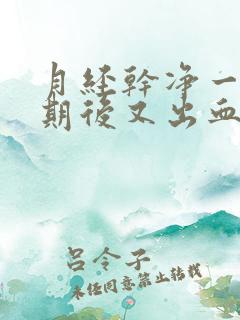 月经幹净一
期後又出血
吕令子
未经同意禁止转载